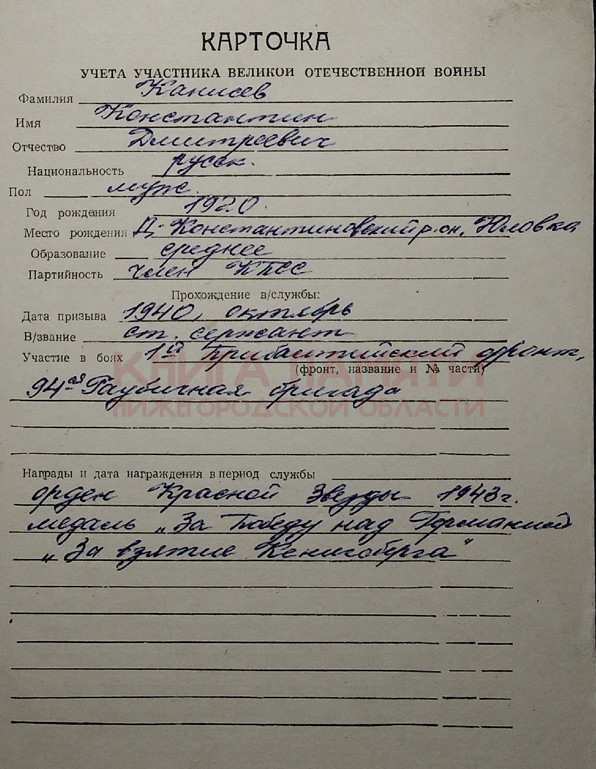 КАРТОЧКА
УЧЕТА УЧАСТНИКА ВЕЛИКОЙ ОТЕЧЕСТВЕННОЙ ВОЙНЫ
Фамилия Канисев
Имя Константин
Отчество Дмитреевич
Национальность русск.
Пол муж.
Год рождения 1920.
Место рождения Д-Константиновский р-он, Юловка
Образование среднее
Партийность член КПСС
Прохождение в/службы:
Дата призыва 1940, октябрь
В/звание ст. сержант
Участие в боях 1й Прибалтийский фронт,
(фронт, название и № части)
94ая Гаубичная бригада
КНИГА ПАМЯТИ
НИЖЕГОРОДСКОЙ ОБЛАСТИ
Награды и дата награждения в период службы
орден Красной Звезды 1943г.
медаль „За Победу над Германией
„За взятие Кенигсберга"